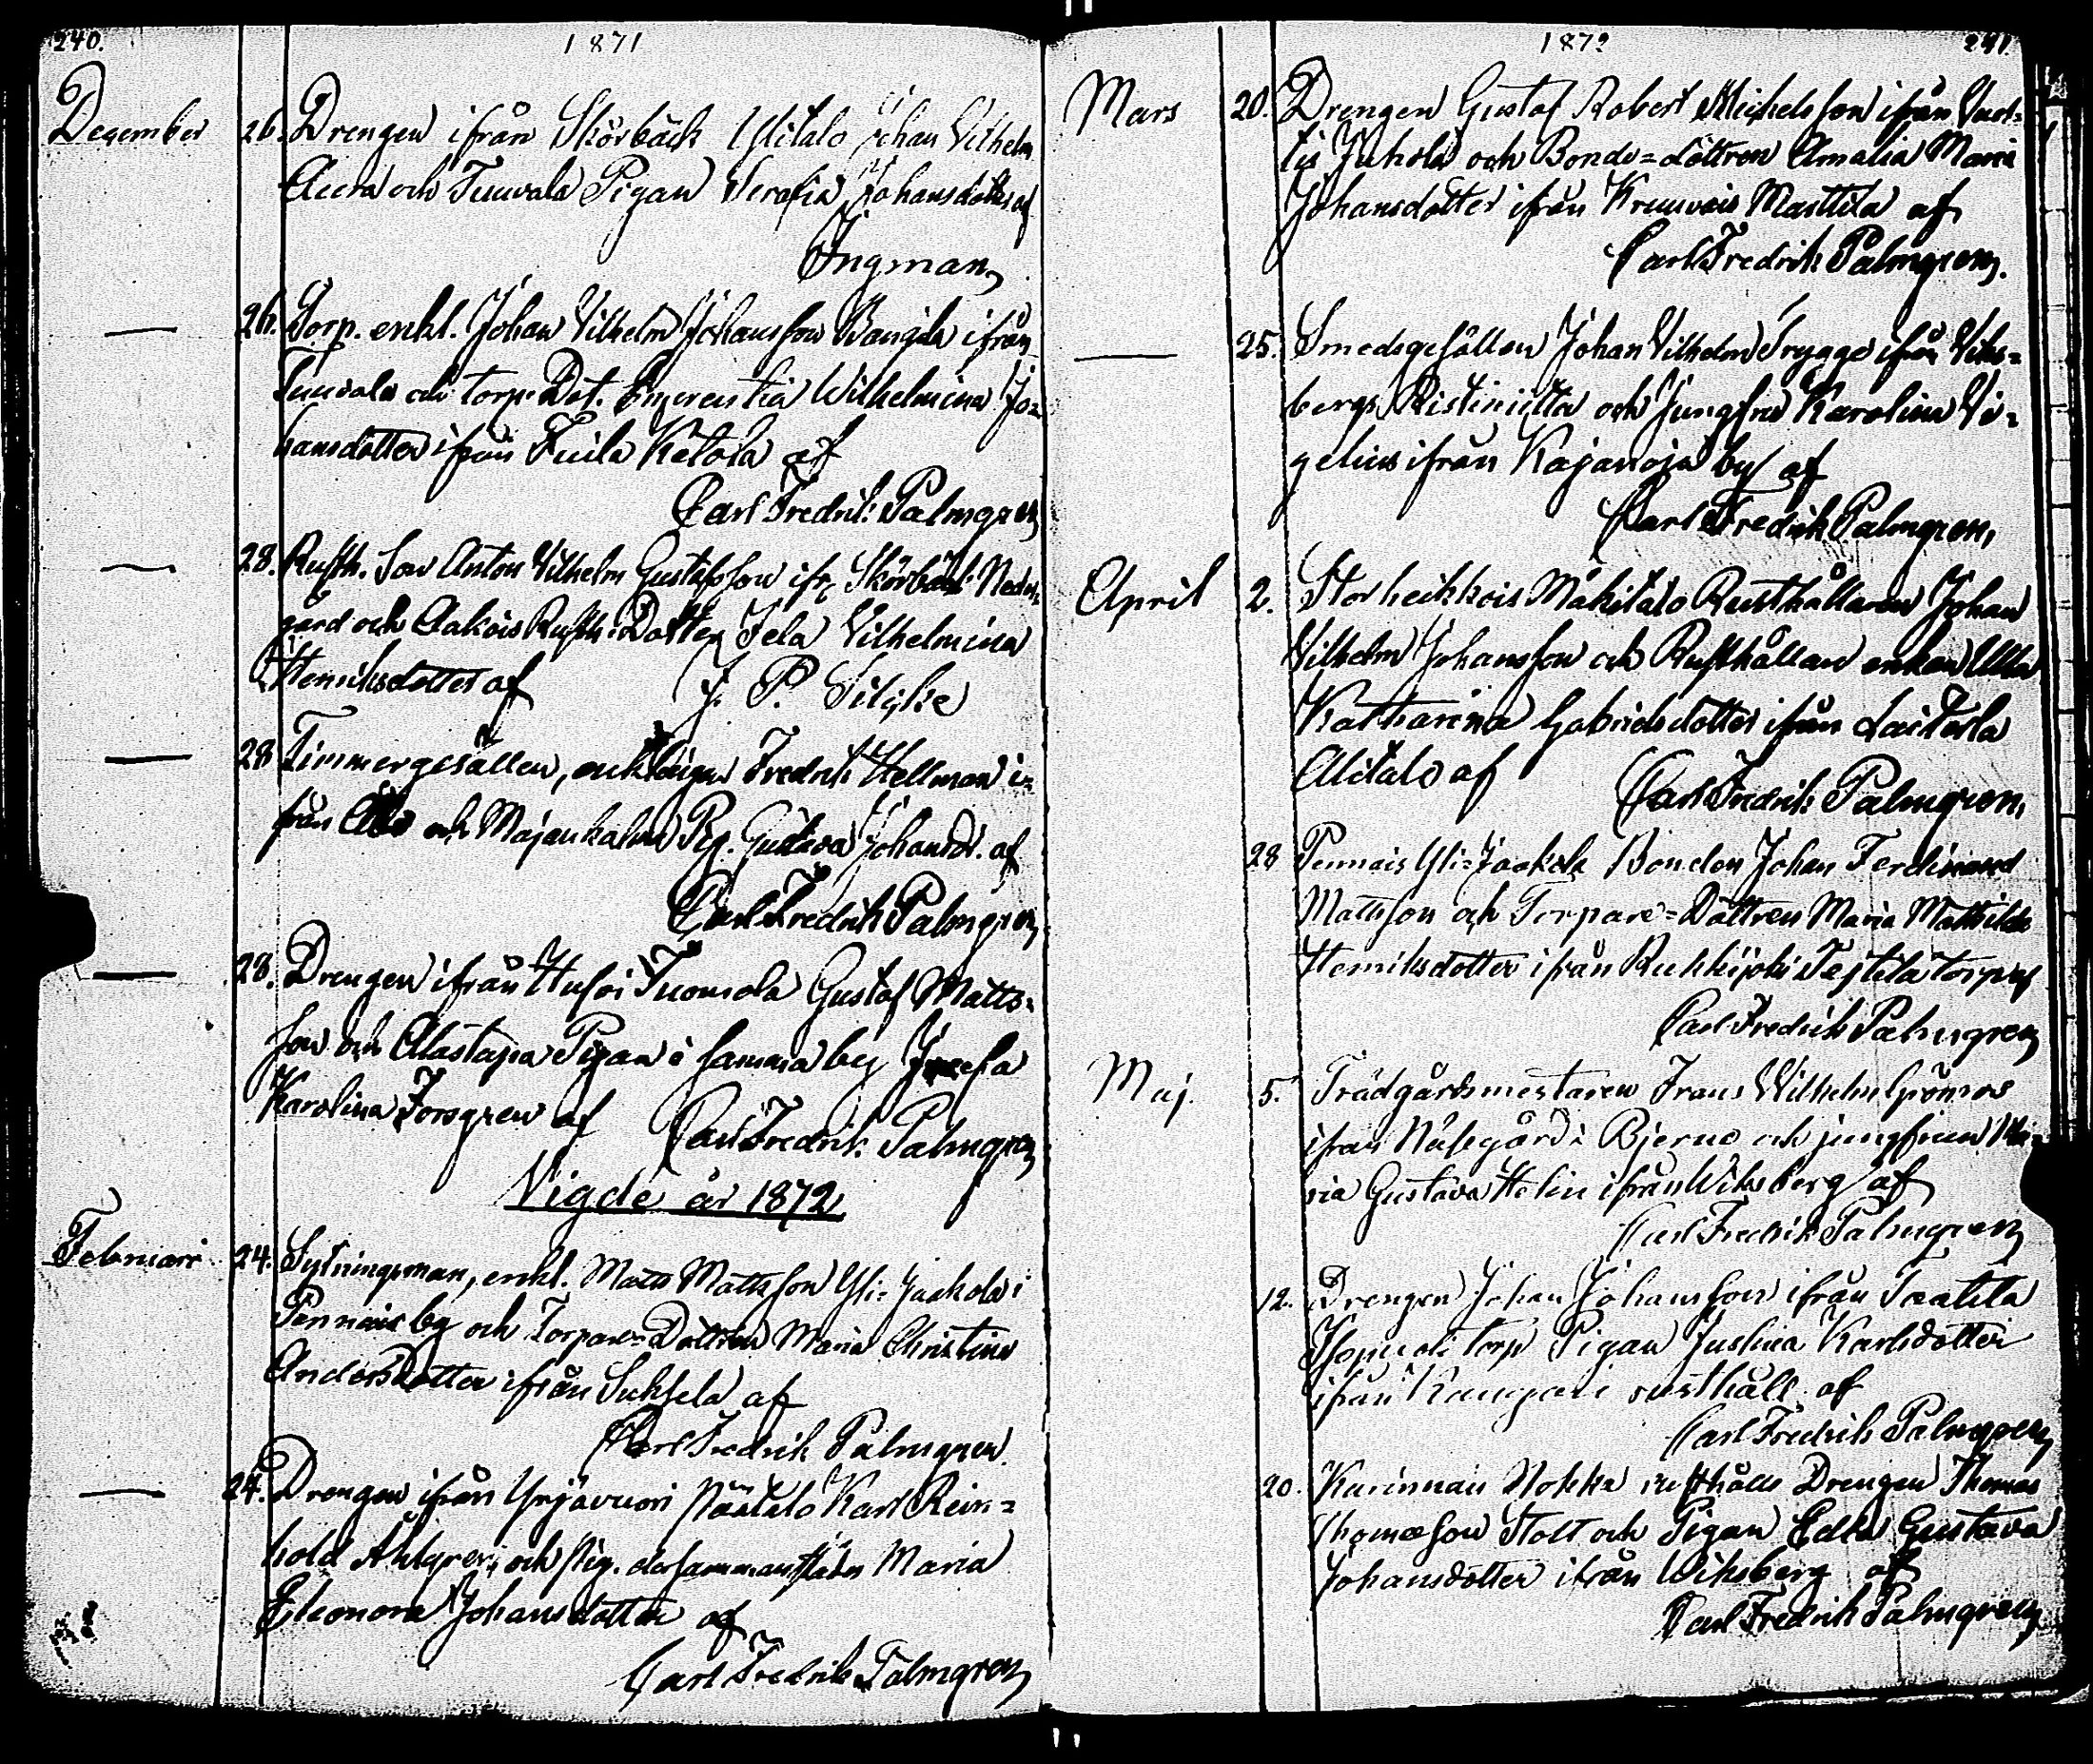 240.
1871
December 26. Drengen ifrån Skörbäck Ylitalo Johan Vilhelm
och Tuuvala Pigan Serafia Johansdotter af
Ingman
— 26. Torp. enkl. Johan Vilhelm Johansson ifrån
Tuuvala och torp. Dot. Emerentia Wilhelmina Jo-
hansdotter ifrån Tuila Ketola af
Carl Fredrik Palmgren
— 28. Rusth. Son Anton Vilhelm Gustafsson ifr. Skörbäck Neder-
gård och Aakois Rusth: Dotter Fela Vilhelmina
Henriksdotter af J. P.
— 28 Timmergesällen, enklingen Fredrik Hellman i-
från Åbo och Majankalma Pig. Gustava Johansd. af
Carl Fredrik Palmgren
— 28. Drengen ifrån Tuomola Gustaf Matts-
son och Alastapa Pigan i samma by Josefa
Karolina Forsgren af Carl Fredrik Palmgren
Vigde år 1872
Februari 24. Sytningsman, enkl. Matts Mattsson Yli-Jaakola i
Pennais by och Torpare-Dottren Maria Christina
Andersdotter ifrån Suksela af
Carl Fredrik Palmgren.
— 24. Drengen ifrån Yrjävuori Näätälö Karl Rein-
hold Åhlgren och pig. dersammanstädes Maria
Eleonora Johansdotter af
Carl Fredrik Palmgren
1872
241.
Mars 20. Drengen Gustaf Robert Michelsson ifrån Vart-
tis Juhola och Bonde-dottren Amalia Maria
Johansdotter ifrån Kruuvois Marttila af
Carl Fredrik Palmgren.
— 25. Smedsgesällen Johan Vilhelm Trygge ifrån Viks-
bergs Ristiniitta och Jungfru Karolina Vi-
gelius ifrån Kajanoja by af
Carl Fredrik Palmgren,
April 2. Storheikkois Mäkitalo Rusthållaren Johan
Vilhelm Johansson och Rusthållare enkan Ulla
Katharina Gabrielsdotter ifrån
Alitalo af Carl Fredrik Palmgren,
28 Pennais Yli-Jaakola Bonden Johan Ferdinand
Mattsson och Torpare-Dottren Maria Mathilda
Henriksdotter ifrån Rukkijoki torp af
Carl Fredrik Palmgren
Maj. 5. Trädgårdsmestaren Frans Wilhelm Grönroos
ifrån Näsegård i Bjerno och jungfrun Ma-
ria Gustava Helin ifrån Wiksberg af
Carl Fredrik Palmgren
12. Drengen Johan Johansson ifrån Taatila
Isopuoli torp Pigan Justina Karlsdotter
ifrån Kangari rusthåll af
Carl Fredrik Palmgren
20. Karinnais Nokka rusthålls Drengen Thomas
Thomasson Stolt och Pigan Edla Gustava
Johansdotter ifrån Wiksberg af
Carl Fredrik Palmgren